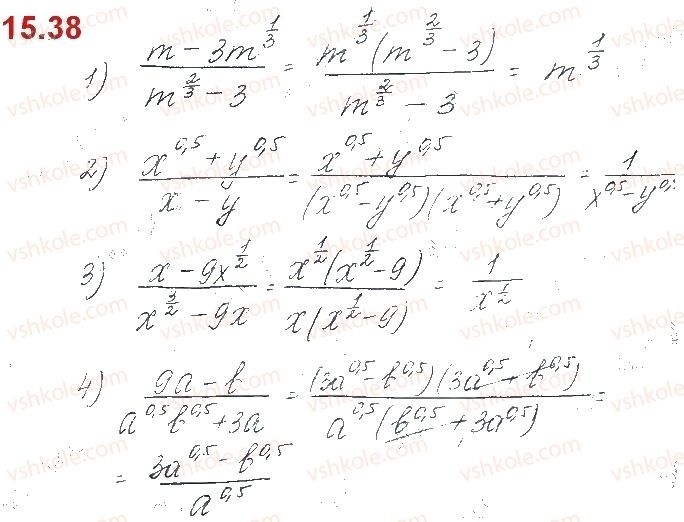 15.38
1) \frac{m - 3m^{\frac{1}{3}}}{m^{\frac{2}{3}} - 3} = \frac{m^{\frac{1}{3}}(m^{\frac{2}{3}} - 3)}{m^{\frac{2}{3}} - 3} = m^{\frac{1}{3}}
2) \frac{x^{0,5} + y^{0,5}}{x - y} = \frac{x^{0,5} + y^{0,5}}{(x^{0,5} - y^{0,5})(x^{0,5} + y^{0,5})} = \frac{1}{x^{0,5} - y^{0,5}}
3) \frac{x - 9x^{\frac{1}{2}}}{x^{\frac{3}{2}} - 9x} = \frac{x^{\frac{1}{2}}(x^{\frac{1}{2}} - 9)}{x(x^{\frac{1}{2}} - 9)} = \frac{1}{x^{\frac{1}{2}}}
4) \frac{9a - b}{a^{0,5} b^{0,5} + 3a} = \frac{(3a^{0,5} - b^{0,5})(3a^{0,5} + b^{0,5})}{a^{0,5}(b^{0,5} + 3a^{0,5})} =
= \frac{3a^{0,5} - b^{0,5}}{a^{0,5}}